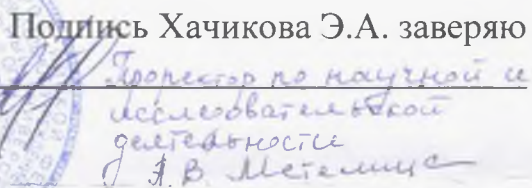 Подпись Хачикова Э.А. заверяю
Проректор по научной и
исследовательской
деятельности
А.В. Метелица